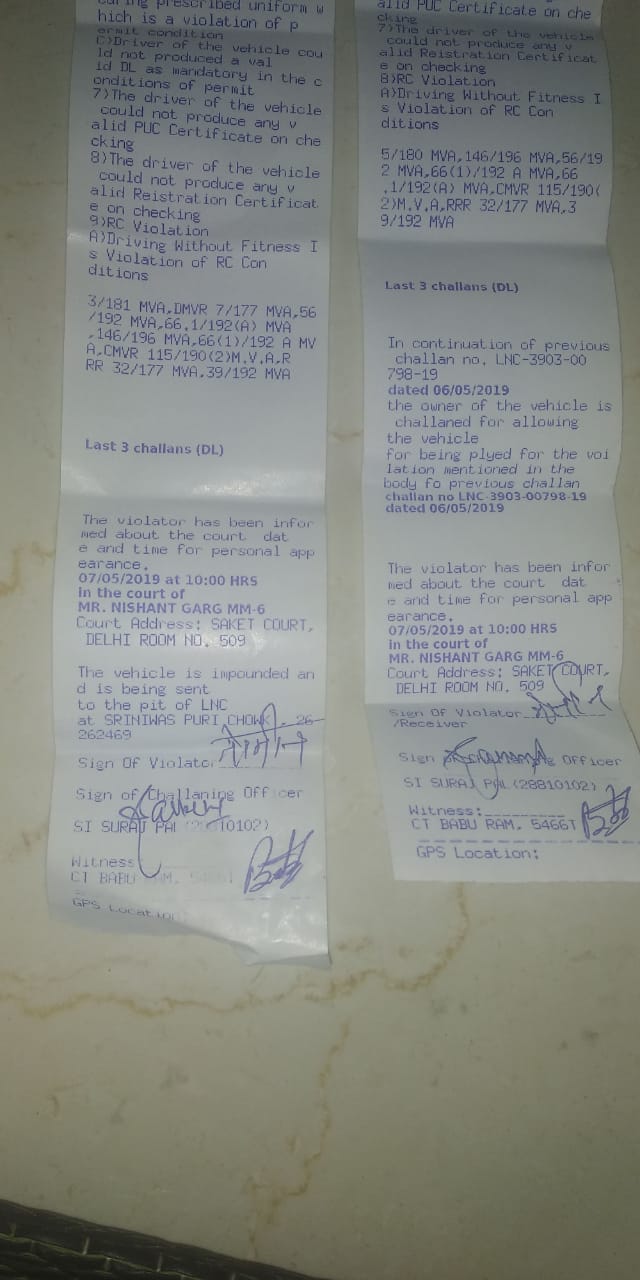 prescribed uniform w
hich is a violation of p
ermit condition
C)Driver of the vehicle cou
ld not produced a val
id DL as mandatory in the c
onditions of permit
7)The driver of the vehicle
could not produce any v
alid PUC Certificate on che
cking
8)The driver of the vehicle
could not produce any v
alid Reistration Certificat
e on checking
9)RC Violation
A)Driving Without Fitness I
s Violation of RC Con
ditions
3/181 MVA,DMVR 7/177 MVA,56
/192 MVA,66.1/192(A) MVA
,146/196 MVA,66(1)/192 A MV
A,CMVR 115/190(2)M.V.A,R
RR 32/177 MVA,39/192 MVA
Last 3 challans (DL)
The violator has been infor
med about the court dat
e and time for personal app
earance.
07/05/2019 at 10:00 HRS
in the court of
MR. NISHANT GARG MM-6
Court Address: SAKET COURT,
DELHI ROOM NO. 509
The vehicle is impounded an
d is being sent
to the pit of LNC
at SRINIWAS PURI CHOWK . 26
262469
Sign Of Violator
Sign of Challaning Officer
SI SURAJ PAL (28810102)
Witness
CT BABU RAM. 5466T
GPS Location:
alid PUC Certificate on che
cking
7)The driver of the vehicle
could not produce any v
alid Reistration Certificat
e on checking
8)RC Violation
A)Driving Without Fitness I
s Violation of RC Con
ditions
5/180 MVA,146/196 MVA,56/19
2 MVA,66(1)/192 A MVA,66
.1/192(A) MVA,CMVR 115/190(
2)M.V.A,RRR 32/177 MVA,3
9/192 MVA
Last 3 challans (DL)
In continuation of previous
challan no. LNC-3903-00
798-19
dated 06/05/2019
the owner of the vehicle is
challaned for allowing
the vehicle
for being plyed for the voi
lation mentioned in the
body fo previous challan
challan no LNC-3903-00798-19
dated 06/05/2019
The violator has been infor
med about the court dat
e and time for personal app
earance.
07/05/2019 at 10:00 HRS
in the court of
MR. NISHANT GARG MM-6
Court Address: SAKET COURT,
DELHI ROOM NO. 509
Sign Of Violator
/Receiver
Sign Officer
SI SURAJ PAL(28810102)
Witness:
CT BABU RAM. 5466T
GPS Location: